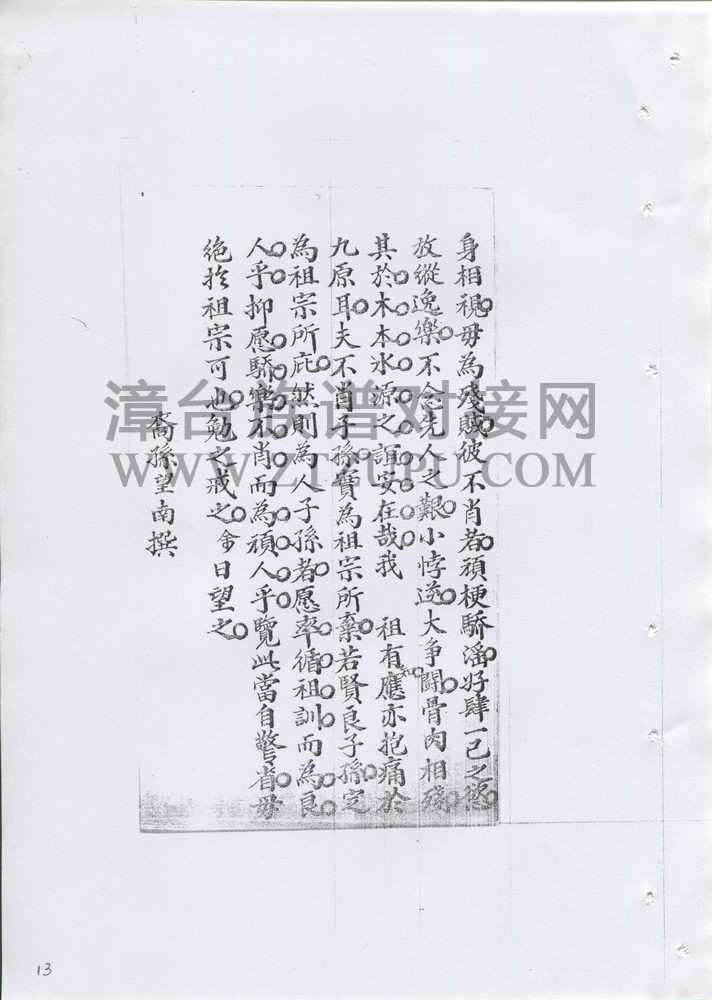 身相視毋為殘賊彼不肖者頑梗驕滛好肆一己之慾
放縱逸樂不念先人之艱小悖逆大争鬪骨肉相殘
其於木本水源之誼安在哉我 祖有知應亦抱痛於
九原耳夫不肖子孫實為祖宗所棄若賢良子孫定
為祖宗所庇然則為人子孫者愿率循祖訓而為良
人乎抑愿驕樂不肖而為頑人乎覽此當自警省毋
絶於祖宗可也勉之戒之余日望之
裔孫望南撰
漳台族谱对接网
WWW.ZTZUPU.COM
13